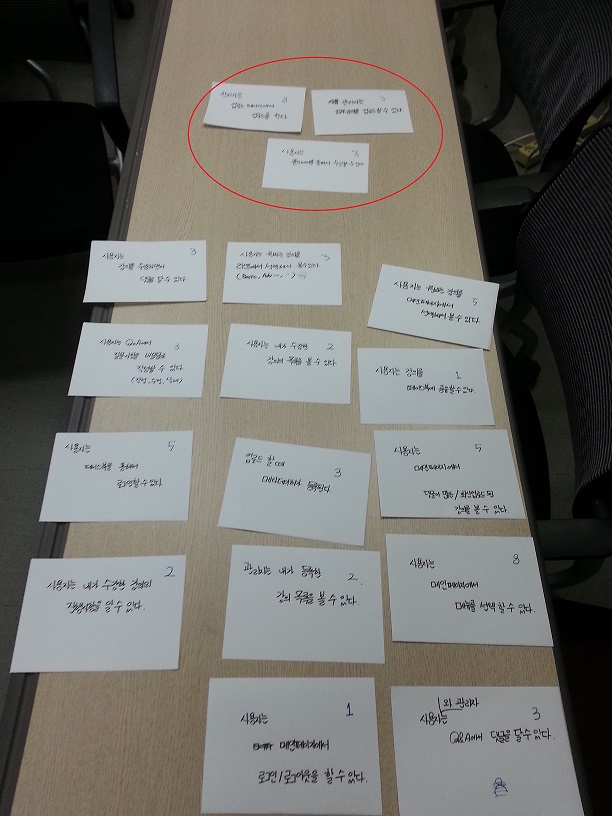 관리자는 8
업로드 페이지에서
업로드를 한다.
3
관리자는
업로드할 수 있다.
사용자는 3
통해서 수강할 수 있다
사용자는 3
강의를 수강하면서
댓글을 달 수 있다.
사용자는 원하는 강의를 3
선택해서 볼 수 있다
사용자는 원하는 강의를 5
메인페이지에서
선택해서 볼 수 있다.
사용자는 QnA에서 3
질문사항을
작성할 수 있다
사용자는 내가 수강한 2
강의의 목록을 볼 수 있다.
사용자는 강의를 1
페이스북에 공유할 수 있다.
사용자는 5
페이스북을 통해서
로그인할 수 있다.
업로드 할 때 3
메타데이터가 등록된다.
사용자는 5
메인페이지에서
댓글이 많은 / 최신업로드 된
강의를 볼 수 있다.
사용자는 내가 수강한 강의의 2
진행사항을 알 수 있다.
관리자는 내가 등록한 2.
강의 목록을 볼 수 있다.
사용자는 8
메인페이지에서
메뉴를 선택할 수 있다.
사용자는 1
메인페이지에서
로그인/로그아웃을 할 수 있다.
와 관리자
사용자는 3
Q&A에 댓글을 달 수 있다.